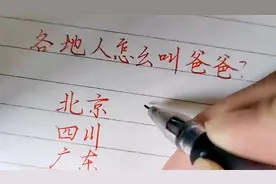 各地人怎么叫爸爸?
北京
四川
广东